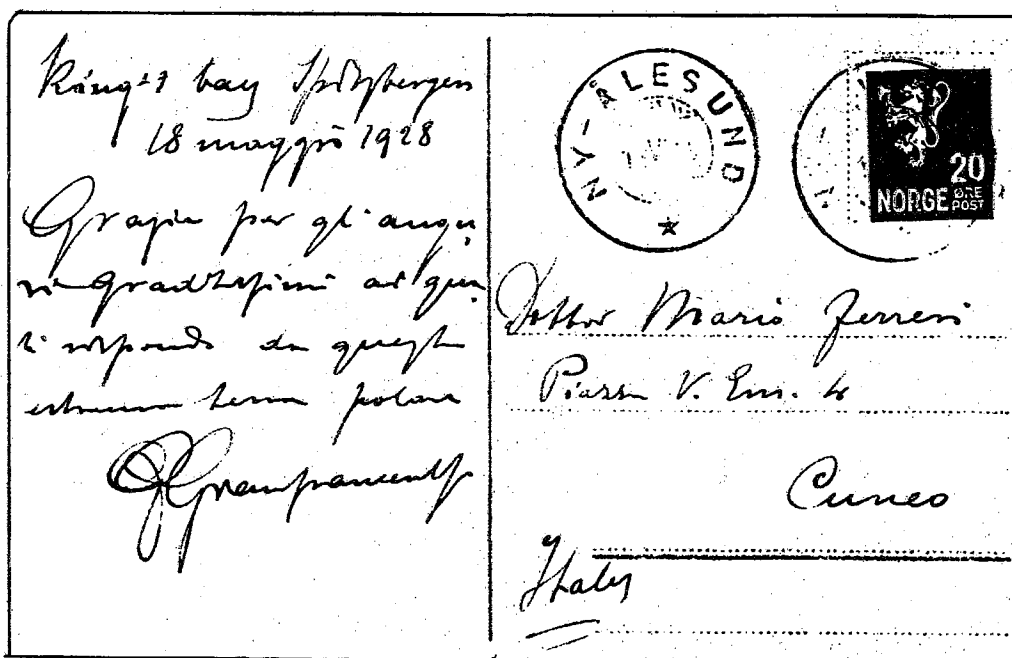 King's bay Spitzbergen
18 maggio 1928
Grazie per gli augu
ri graditissimi ai qua
li rispondo da questa
estrema terra polare
NY-ÅLESUND
20
NORGE ØRE POST
Dottor Mario Ferreri
Piazza V. Em. 4
Cuneo
Italy